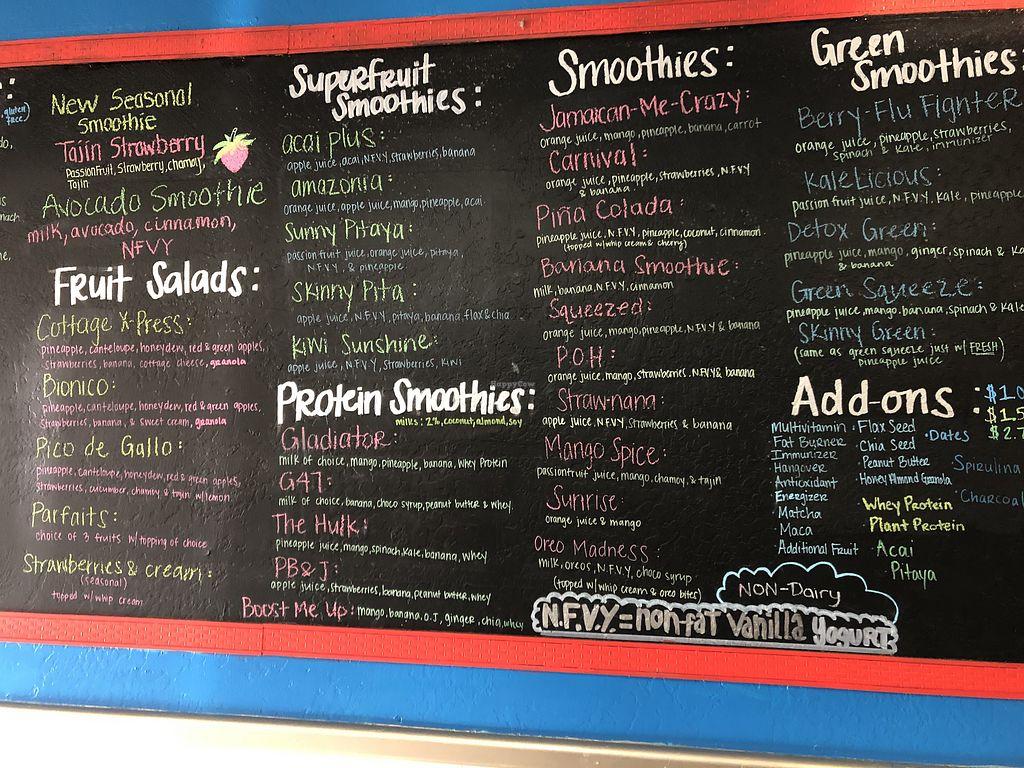 gluten free
New Seasonal
Smoothie
Tajin Strawberry
Passionfruit, Strawberry, chamoy,
Tajin
Avocado Smoothie
milk, avocado, cinnamon,
NFVY
Fruit Salads:
Cottage X-Press:
pineapple, canteloupe, honeydew, red & green apples,
strawberries, banana, cottage cheese, granola
Bionico:
pineapple, canteloupe, honeydew, red & green apples,
strawberries, banana, & sweet cream, granola
Pico de Gallo:
pineapple, canteloupe, honeydew, red & green apples,
strawberries, cucumber, chamoy & tajin w/lemon
Parfaits:
choice of 3 fruits w/topping of choice
Strawberries & cream:
(seasonal)
topped w/whip cream
Superfruit
Smoothies:
acai plus:
apple juice, acai, N.F.V.Y, strawberries, banana
amazonia:
orange juice, apple juice, mango, pineapple, acai
Sunny Pitaya:
passion fruit juice, orange juice, pitaya,
N.F.V.Y. & pineapple
Skinny Pita:
apple juice, N.F.V.Y, pitaya, banana, flax & chia
Kiwi Sunshine:
apple juice, N.F.V.Y, strawberries, kiwi
Protein Smoothies:
milks: 2%, coconut, almond, soy
Gladiator:
milk of choice, mango, pineapple, banana, whey Protein
G4T:
milk of choice, banana, choco syrup, peanut butter & whey
The Hulk:
pineapple juice, mango, spinach, kale, banana, whey
PB&J:
apple juice, strawberries, banana, peanut butter, whey
Boost Me Up: mango, banana, O.J, ginger, chia, whey
Smoothies:
Jamaican-Me-Crazy:
orange juice, mango, pineapple, banana, carrot
Carnival:
orange juice, pineapple, strawberries, N.F.V.Y
& banana
Piña Colada:
pineapple juice, N.F.V.Y, pineapple, coconut, cinnamon
(topped w/whip cream & cherry)
Banana Smoothie:
milk, banana, N.F.V.Y, cinnamon
Squeezed:
orange juice, mango, pineapple, N.F.V.Y & banana
P.O.H:
orange juice, mango, strawberries, N.F.V.Y & banana
Straw-nana:
apple juice, N.F.V.Y, strawberries & banana
Mango Spice:
passionfruit juice, mango, chamoy, & tajin
Sunrise:
orange juice & mango
Oreo Madness:
milk, oreos, N.F.V.Y, choco syrup
(topped w/whip cream & oreo bites)
Green
Smoothies:
Berry-Flu Fighter
orange juice, pineapple, strawberries,
spinach & kale, immunizer
KaleLicious:
passion fruit juice, N.F.V.Y, kale, pineapple
Detox Green:
pineapple juice, mango, ginger, spinach &
& banana
Green Squeeze:
pineapple juice, mango, banana, spinach & kale
Skinny Green:
(same as green squeeze just w/ FRESH)
pineapple juice
Add-ons:
Multivitamin
Fat Burner
Immunizer
Hangover
Antioxidant
Energizer
Matcha
Maca
Additional Fruit
· Flax Seed
· Chia Seed
· Peanut Butter
· Honey Almond Granola
Whey Protein
Plant Protein
· Acai
Pitaya
· Dates
· Spirulina
· Charcoal
NON-Dairy
N.F.V.Y. = non-fat vanilla yogurt
HappyCow